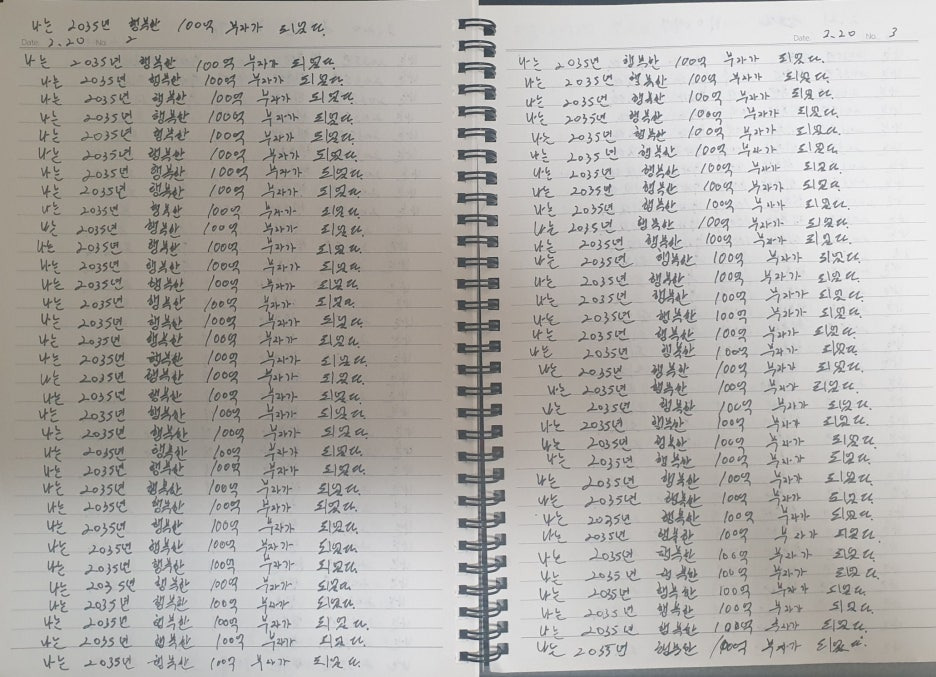 나는 2035년 행복한 100억 부자가 되었다.
Date 2.20 No 2
나는 2035년 행복한 100억 부자가 되었다.
나는 2035년 행복한 100억 부자가 되었다.
나는 2035년 행복한 100억 부자가 되었다.
나는 2035년 행복한 100억 부자가 되었다.
나는 2035년 행복한 100억 부자가 되었다.
나는 2035년 행복한 100억 부자가 되었다.
나는 2035년 행복한 100억 부자가 되었다.
나는 2035년 행복한 100억 부자가 되었다.
나는 2035년 행복한 100억 부자가 되었다.
나는 2035년 행복한 100억 부자가 되었다.
나는 2035년 행복한 100억 부자가 되었다.
나는 2035년 행복한 100억 부자가 되었다.
나는 2035년 행복한 100억 부자가 되었다.
나는 2035년 행복한 100억 부자가 되었다.
나는 2035년 행복한 100억 부자가 되었다.
나는 2035년 행복한 100억 부자가 되었다.
나는 2035년 행복한 100억 부자가 되었다.
나는 2035년 행복한 100억 부자가 되었다.
나는 2035년 행복한 100억 부자가 되었다.
나는 2035년 행복한 100억 부자가 되었다.
나는 2035년 행복한 100억 부자가 되었다.
나는 2035년 행복한 100억 부자가 되었다.
나는 2035년 행복한 100억 부자가 되었다.
나는 2035년 행복한 100억 부자가 되었다.
나는 2035년 행복한 100억 부자가 되었다.
나는 2035년 행복한 100억 부자가 되었다.
나는 2035년 행복한 100억 부자가 되었다.
나는 2035년 행복한 100억 부자가 되었다.
나는 2035년 행복한 100억 부자가 되었다.
나는 2035년 행복한 100억 부자가 되었다.
나는 2035년 행복한 100억 부자가 되었다.
나는 2035년 행복한 100억 부자가 되었다.
나는 2035년 행복한 100억 부자가 되었다.
Date 2.20 No 3
나는 2035년 행복한 100억 부자가 되었다.
나는 2035년 행복한 100억 부자가 되었다.
나는 2035년 행복한 100억 부자가 되었다.
나는 2035년 행복한 100억 부자가 되었다.
나는 2035년 행복한 100억 부자가 되었다.
나는 2035년 행복한 100억 부자가 되었다.
나는 2035년 행복한 100억 부자가 되었다.
나는 2035년 행복한 100억 부자가 되었다.
나는 2035년 행복한 100억 부자가 되었다.
나는 2035년 행복한 100억 부자가 되었다.
나는 2035년 행복한 100억 부자가 되었다.
나는 2035년 행복한 100억 부자가 되었다.
나는 2035년 행복한 100억 부자가 되었다.
나는 2035년 행복한 100억 부자가 되었다.
나는 2035년 행복한 100억 부자가 되었다.
나는 2035년 행복한 100억 부자가 되었다.
나는 2035년 행복한 100억 부자가 되었다.
나는 2035년 행복한 100억 부자가 되었다.
나는 2035년 행복한 100억 부자가 되었다.
나는 2035년 행복한 100억 부자가 되었다.
나는 2035년 행복한 100억 부자가 되었다.
나는 2035년 행복한 100억 부자가 되었다.
나는 2035년 행복한 100억 부자가 되었다.
나는 2035년 행복한 100억 부자가 되었다.
나는 2035년 행복한 100억 부자가 되었다.
나는 2035년 행복한 100억 부자가 되었다.
나는 2035년 행복한 100억 부자가 되었다.
나는 2035년 행복한 100억 부자가 되었다.
나는 2035년 행복한 100억 부자가 되었다.
나는 2035년 행복한 100억 부자가 되었다.
나는 2035년 행복한 100억 부자가 되었다.
나는 2035년 행복한 100억 부자가 되었다.
나는 2035년 행복한 100억 부자가 되었다.